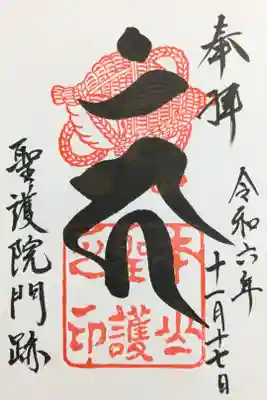 奉拝
令和六年
十一月十七日
本山
聖護
聖護院門跡